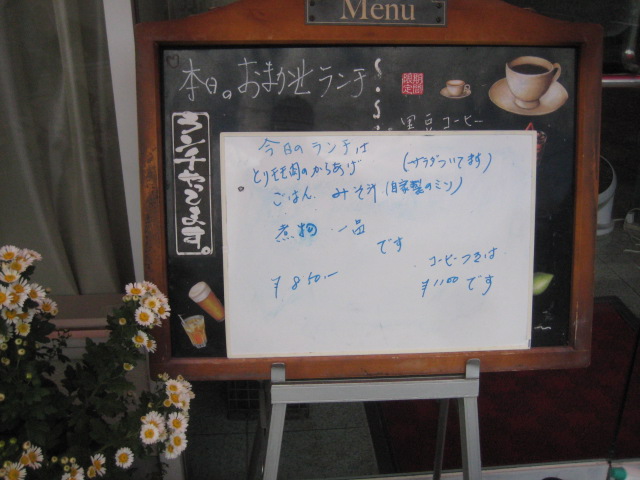 Menu
本日のおまかせランチ
期間
限定
黒豆コーヒー
ランチやってます。
今日のランチは
とりモモ肉のからあげ (サラダついてます)
ごはん、みそ汁(自家製のミソ)
煮物 一品
です
コーヒーつきは
¥850ー ¥1100です